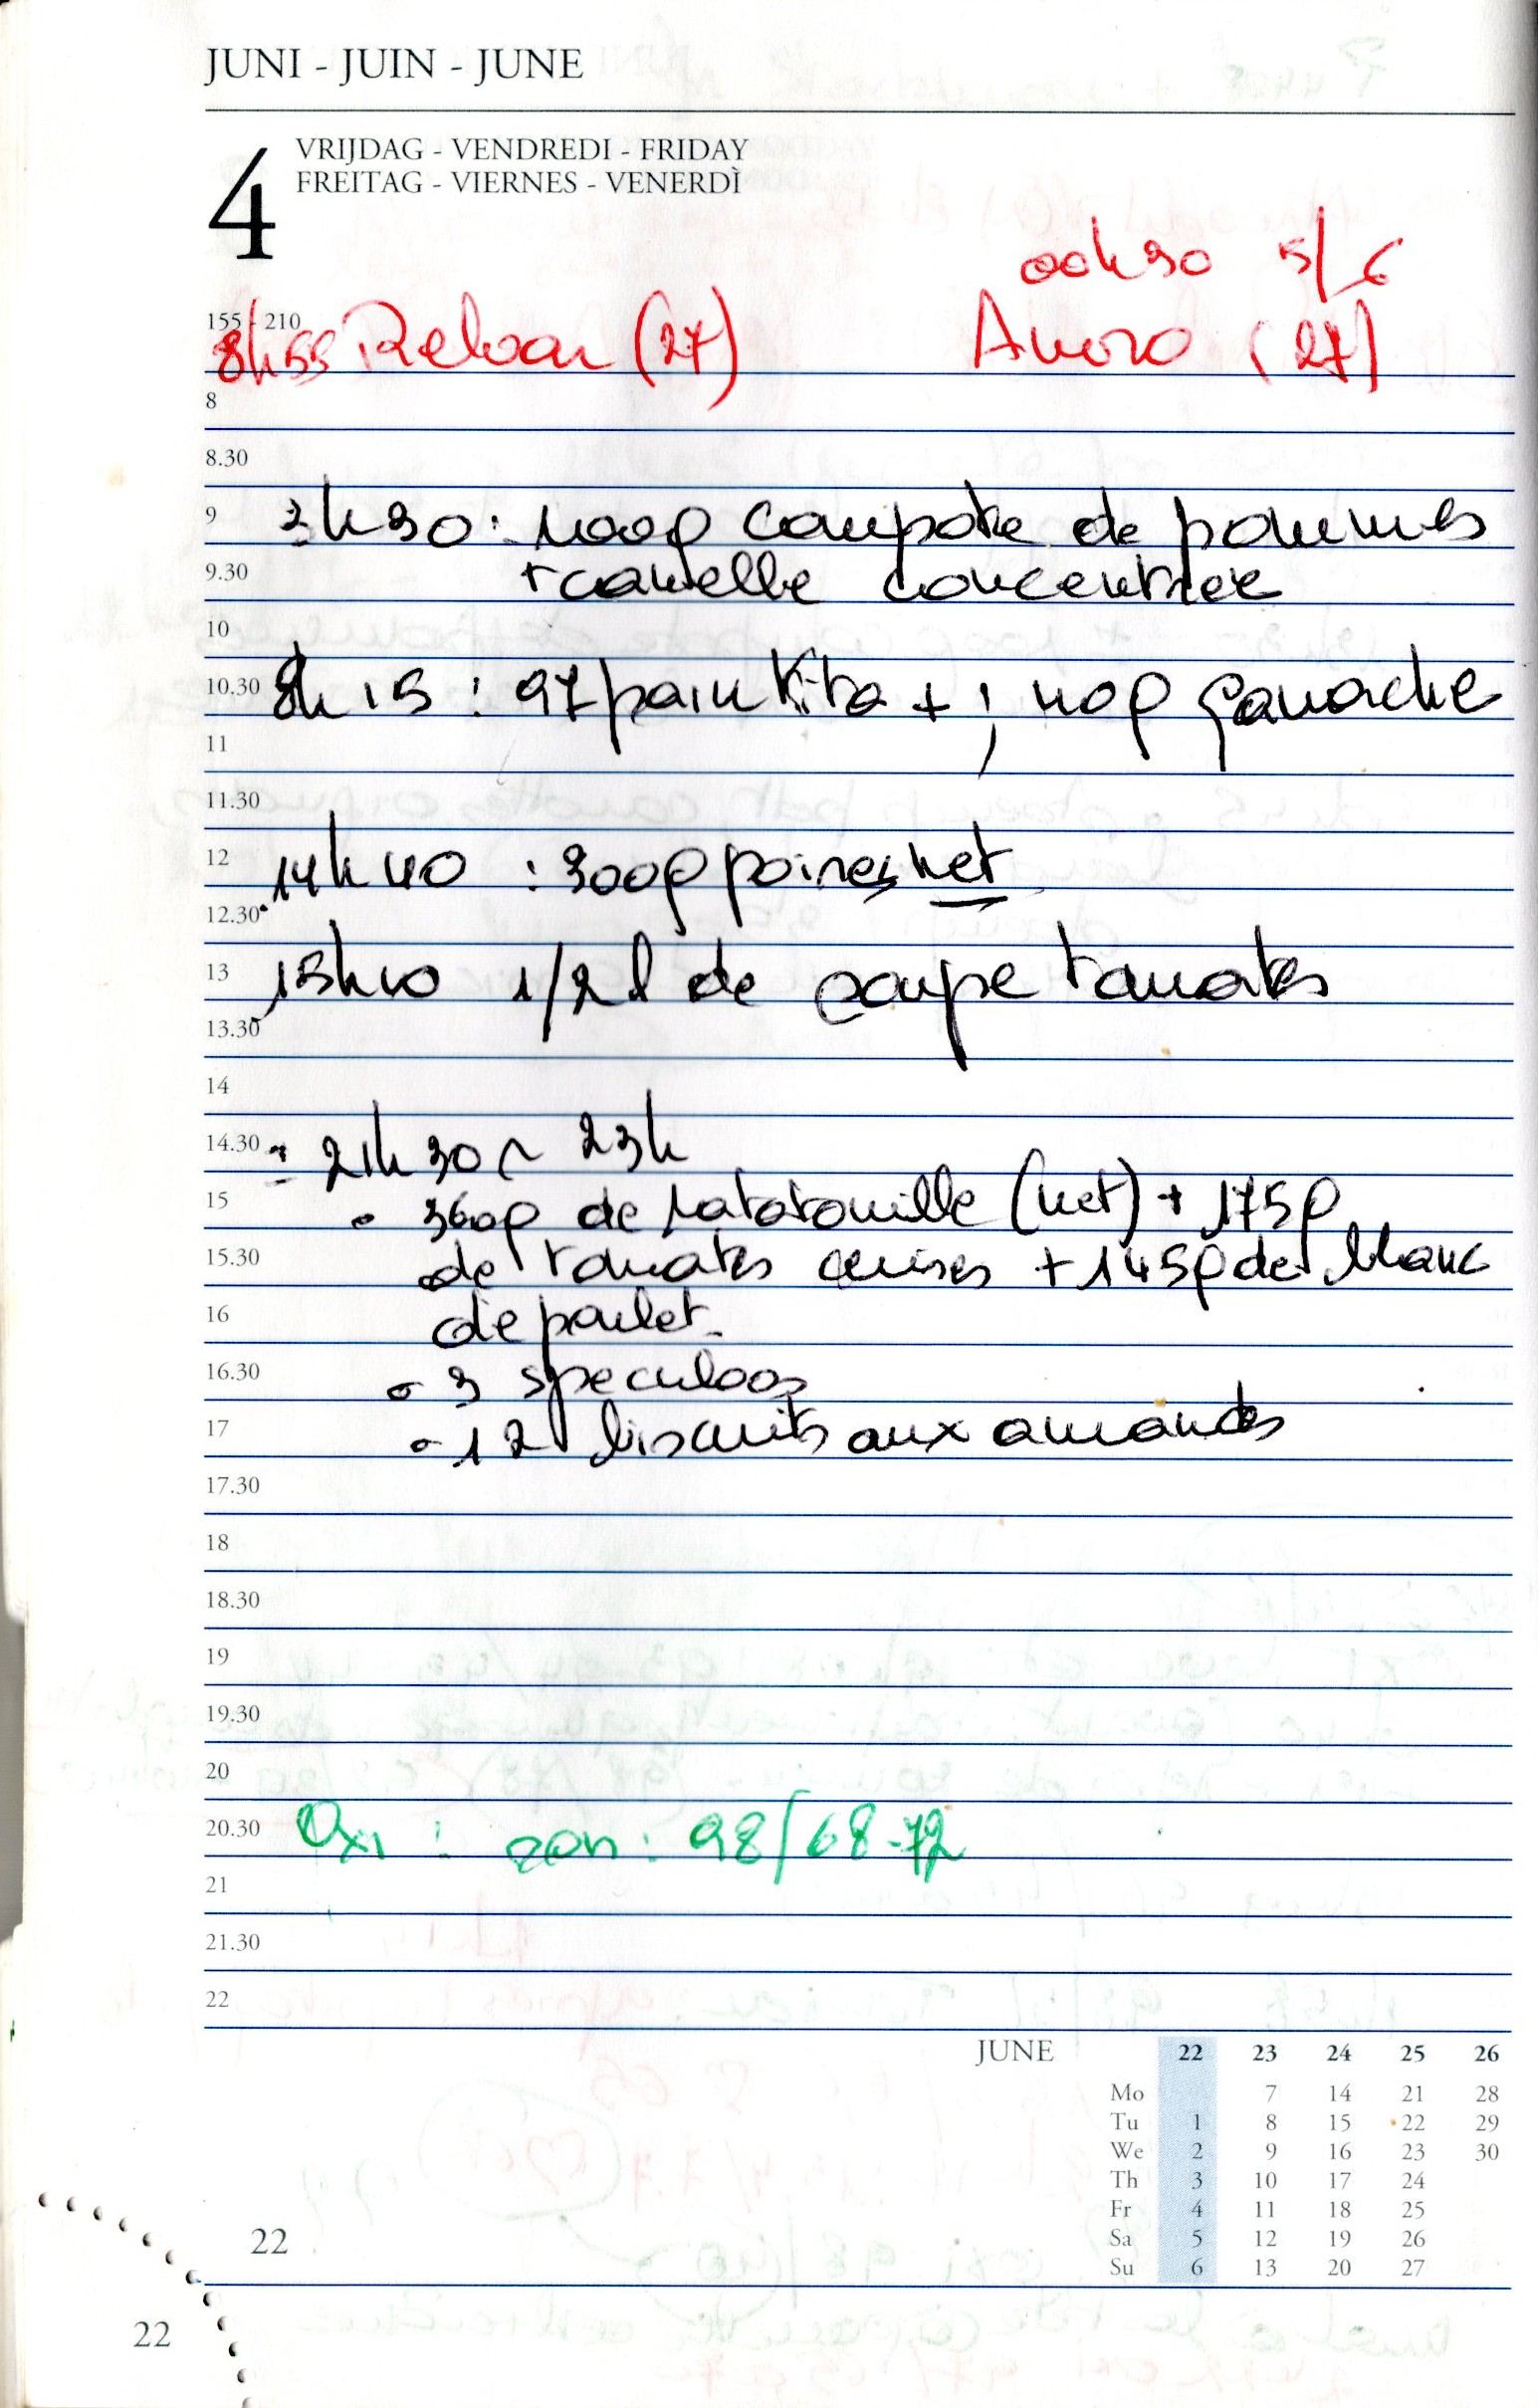 JUNI - JUIN - JUNE
4
VRIJDAG - VENDREDI - FRIDAY
FREITAG - VIERNES - VENERDÌ
00h30 5/6
155 - 210
8h55 Relvar (27) Anoro (27)
8
8.30
9 3h30 : 100g compote de pommes
9.30 + canelle concentrée
10
10.30 8h15 : 97 pain Kita + ; 40g ganache
11
11.30
12 14h40 : 300g poires net
12.30
13 15h40 1/2 l de soupe tomates
13.30
14
14.30 21h30 ~ 23h
15 - 360g de ratatouille (net) + 175g
15.30 de tomates cerises + 145g de blanc
16 de poulet
16.30 - 3 speculoos
17 - 12 biscuits aux amandes
17.30
18
18.30
19
19.30
20
20.30 Oxi : 20h : 98/68-72
21
21.30
22
JUNE 22 23 24 25 26
Mo 7 14 21 28
Tu 1 8 15 22 29
We 2 9 16 23 30
Th 3 10 17 24
Fr 4 11 18 25
Sa 5 12 19 26
Su 6 13 20 27
22
22